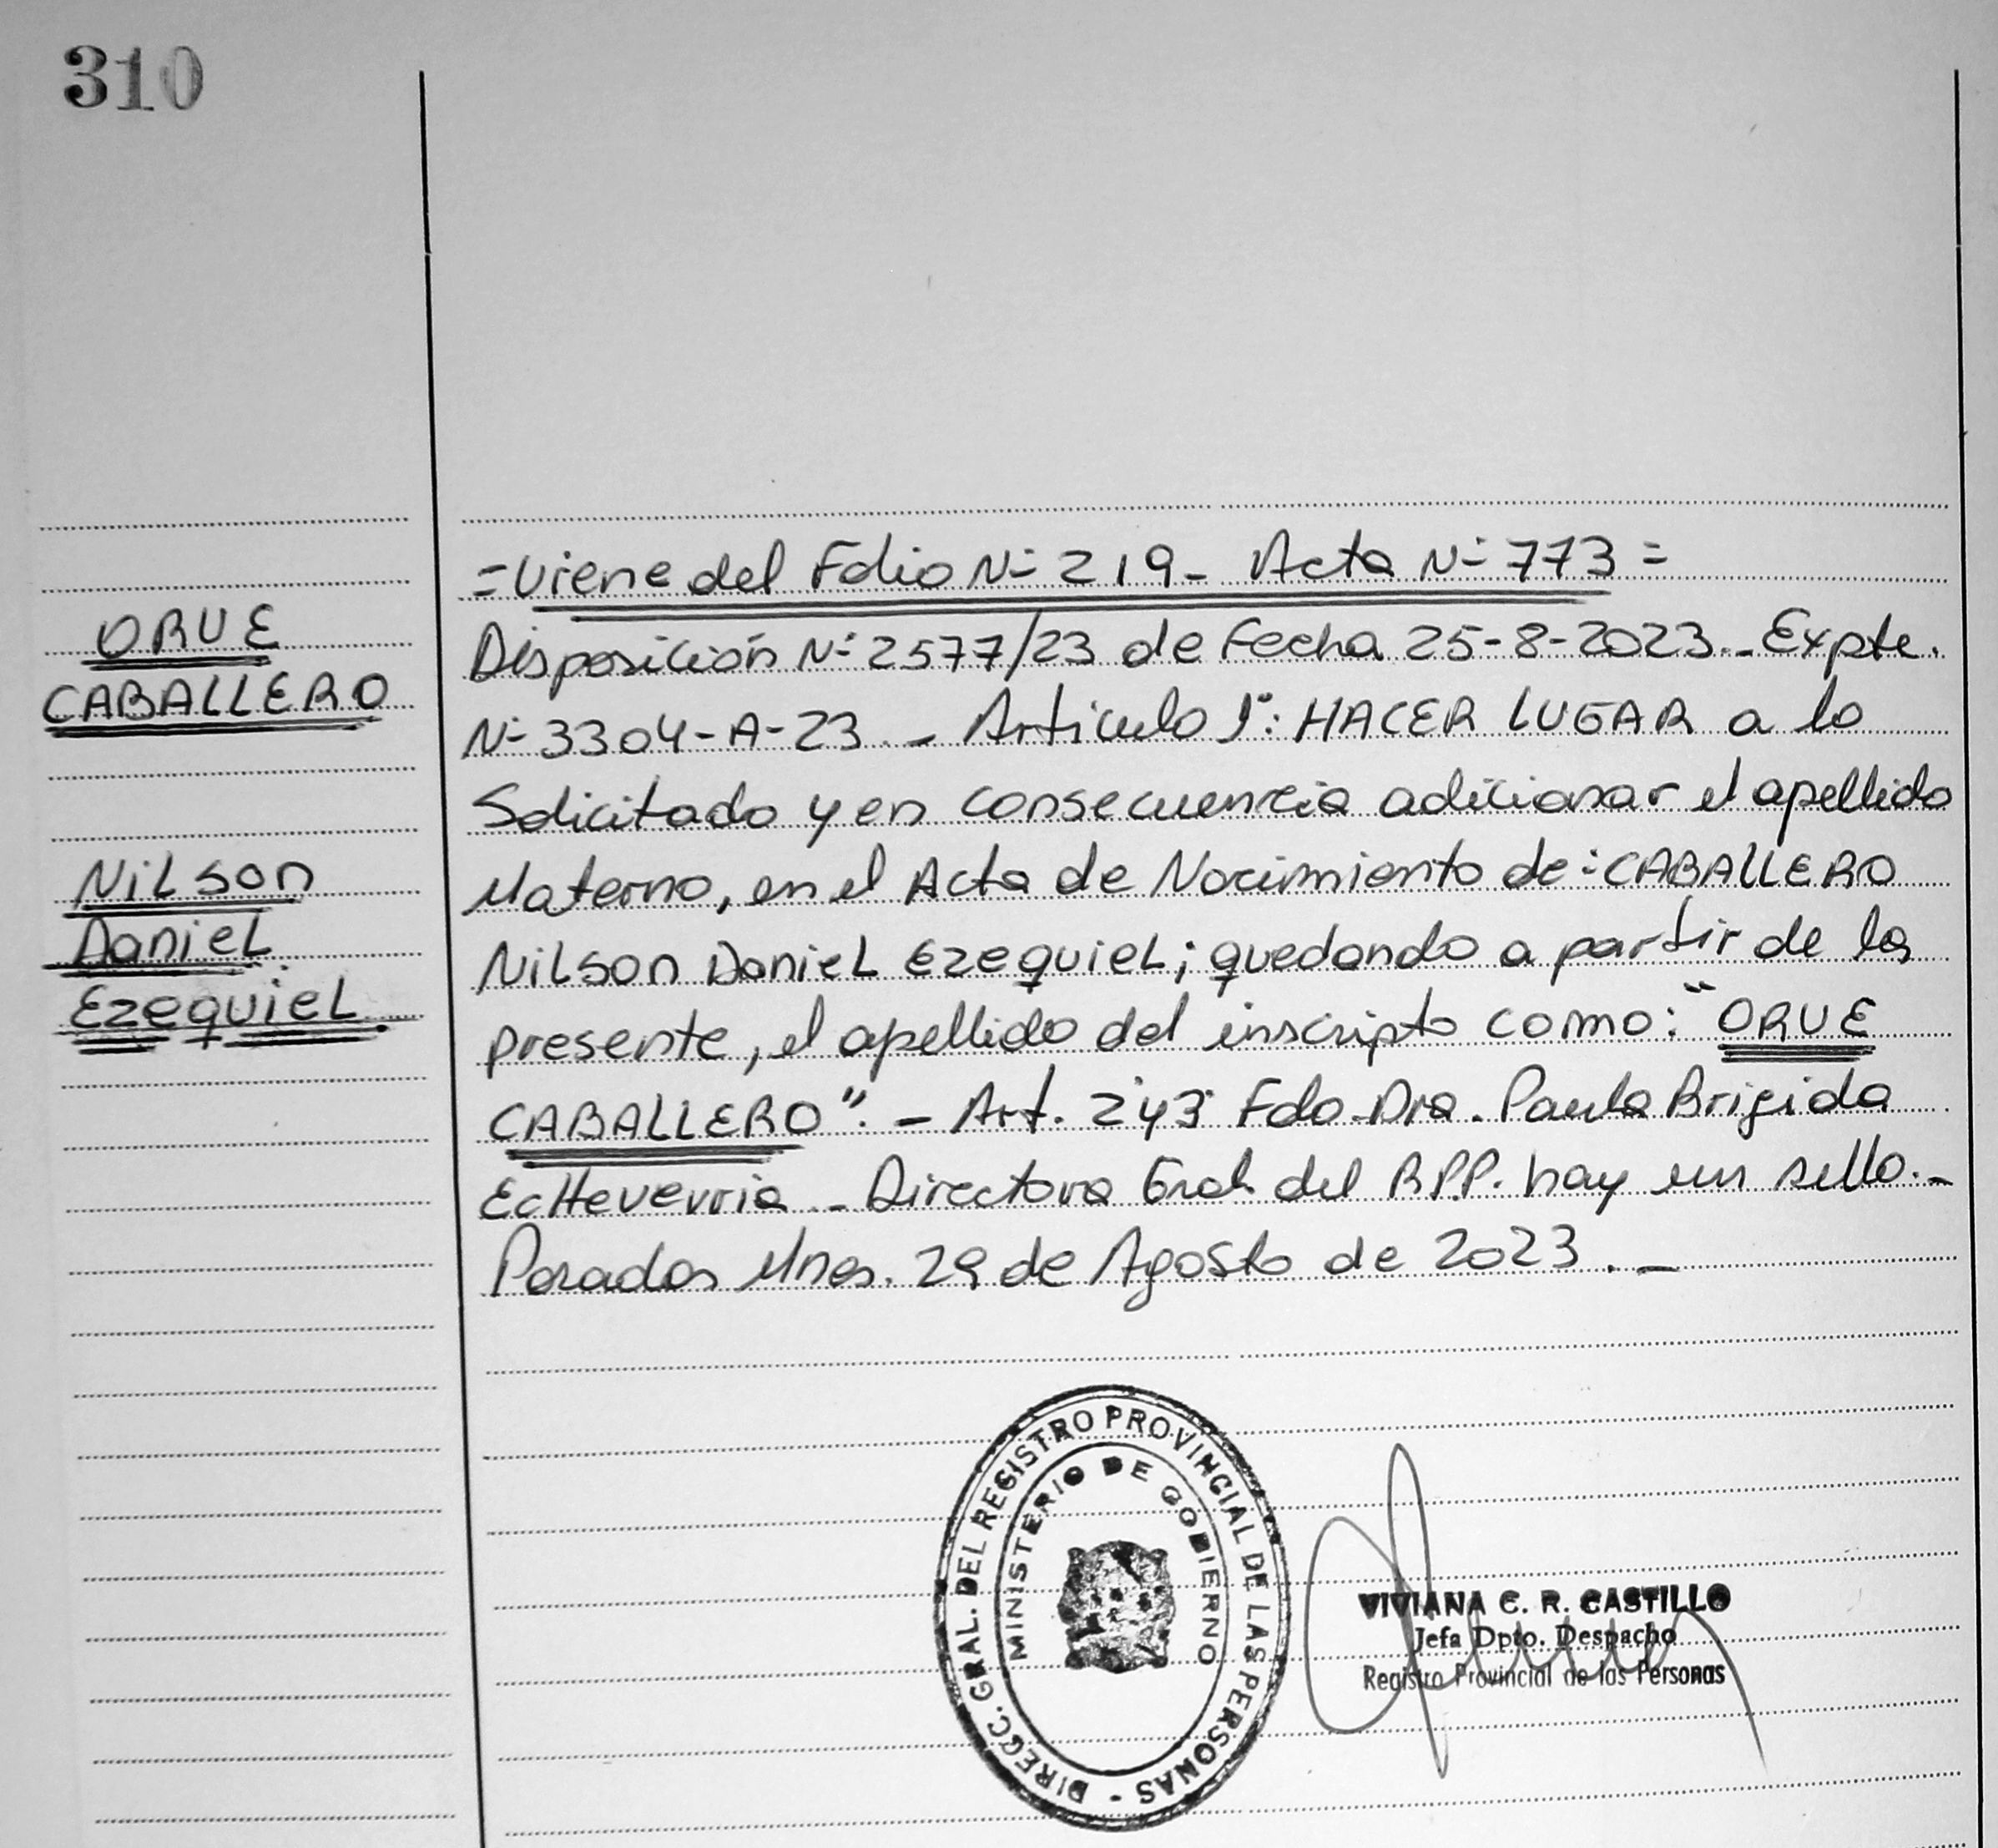 310
ORUE
CABALLERO
NiLson
DanieL
EzequieL
=Viene del Folio Nº 219- Acta Nº 773=
Disposición Nº 2577/23 de Fecha 25-8-2023.- Expte.
Nº 3304-A-23.- Articulo 1º: HACER LUGAR a lo
Solicitado y en consecuencia adicionar el apellido
Materno, en el Acta de Nacimiento de: CABALLERO
NiLson DanieL EzequieL; quedando a partir de la
presente, el apellido del inscripto como: "ORUE
CABALLERO".- Art. 243 Fdo. Dra. Paula Brigida
Echeverria.- Directora Gral. del R.P.P. hay un sello.-
Posadas Mnes. 29 de Agosto de 2023.-
DIRECC. GRAL. DEL REGISTRO PROVINCIAL DE LAS PERSONAS -
MINISTERIO DE GOBIERNO
VIVIANA C. R. CASTILLO
Jefa Dpto. Despacho
Registro Provincial de las Personas